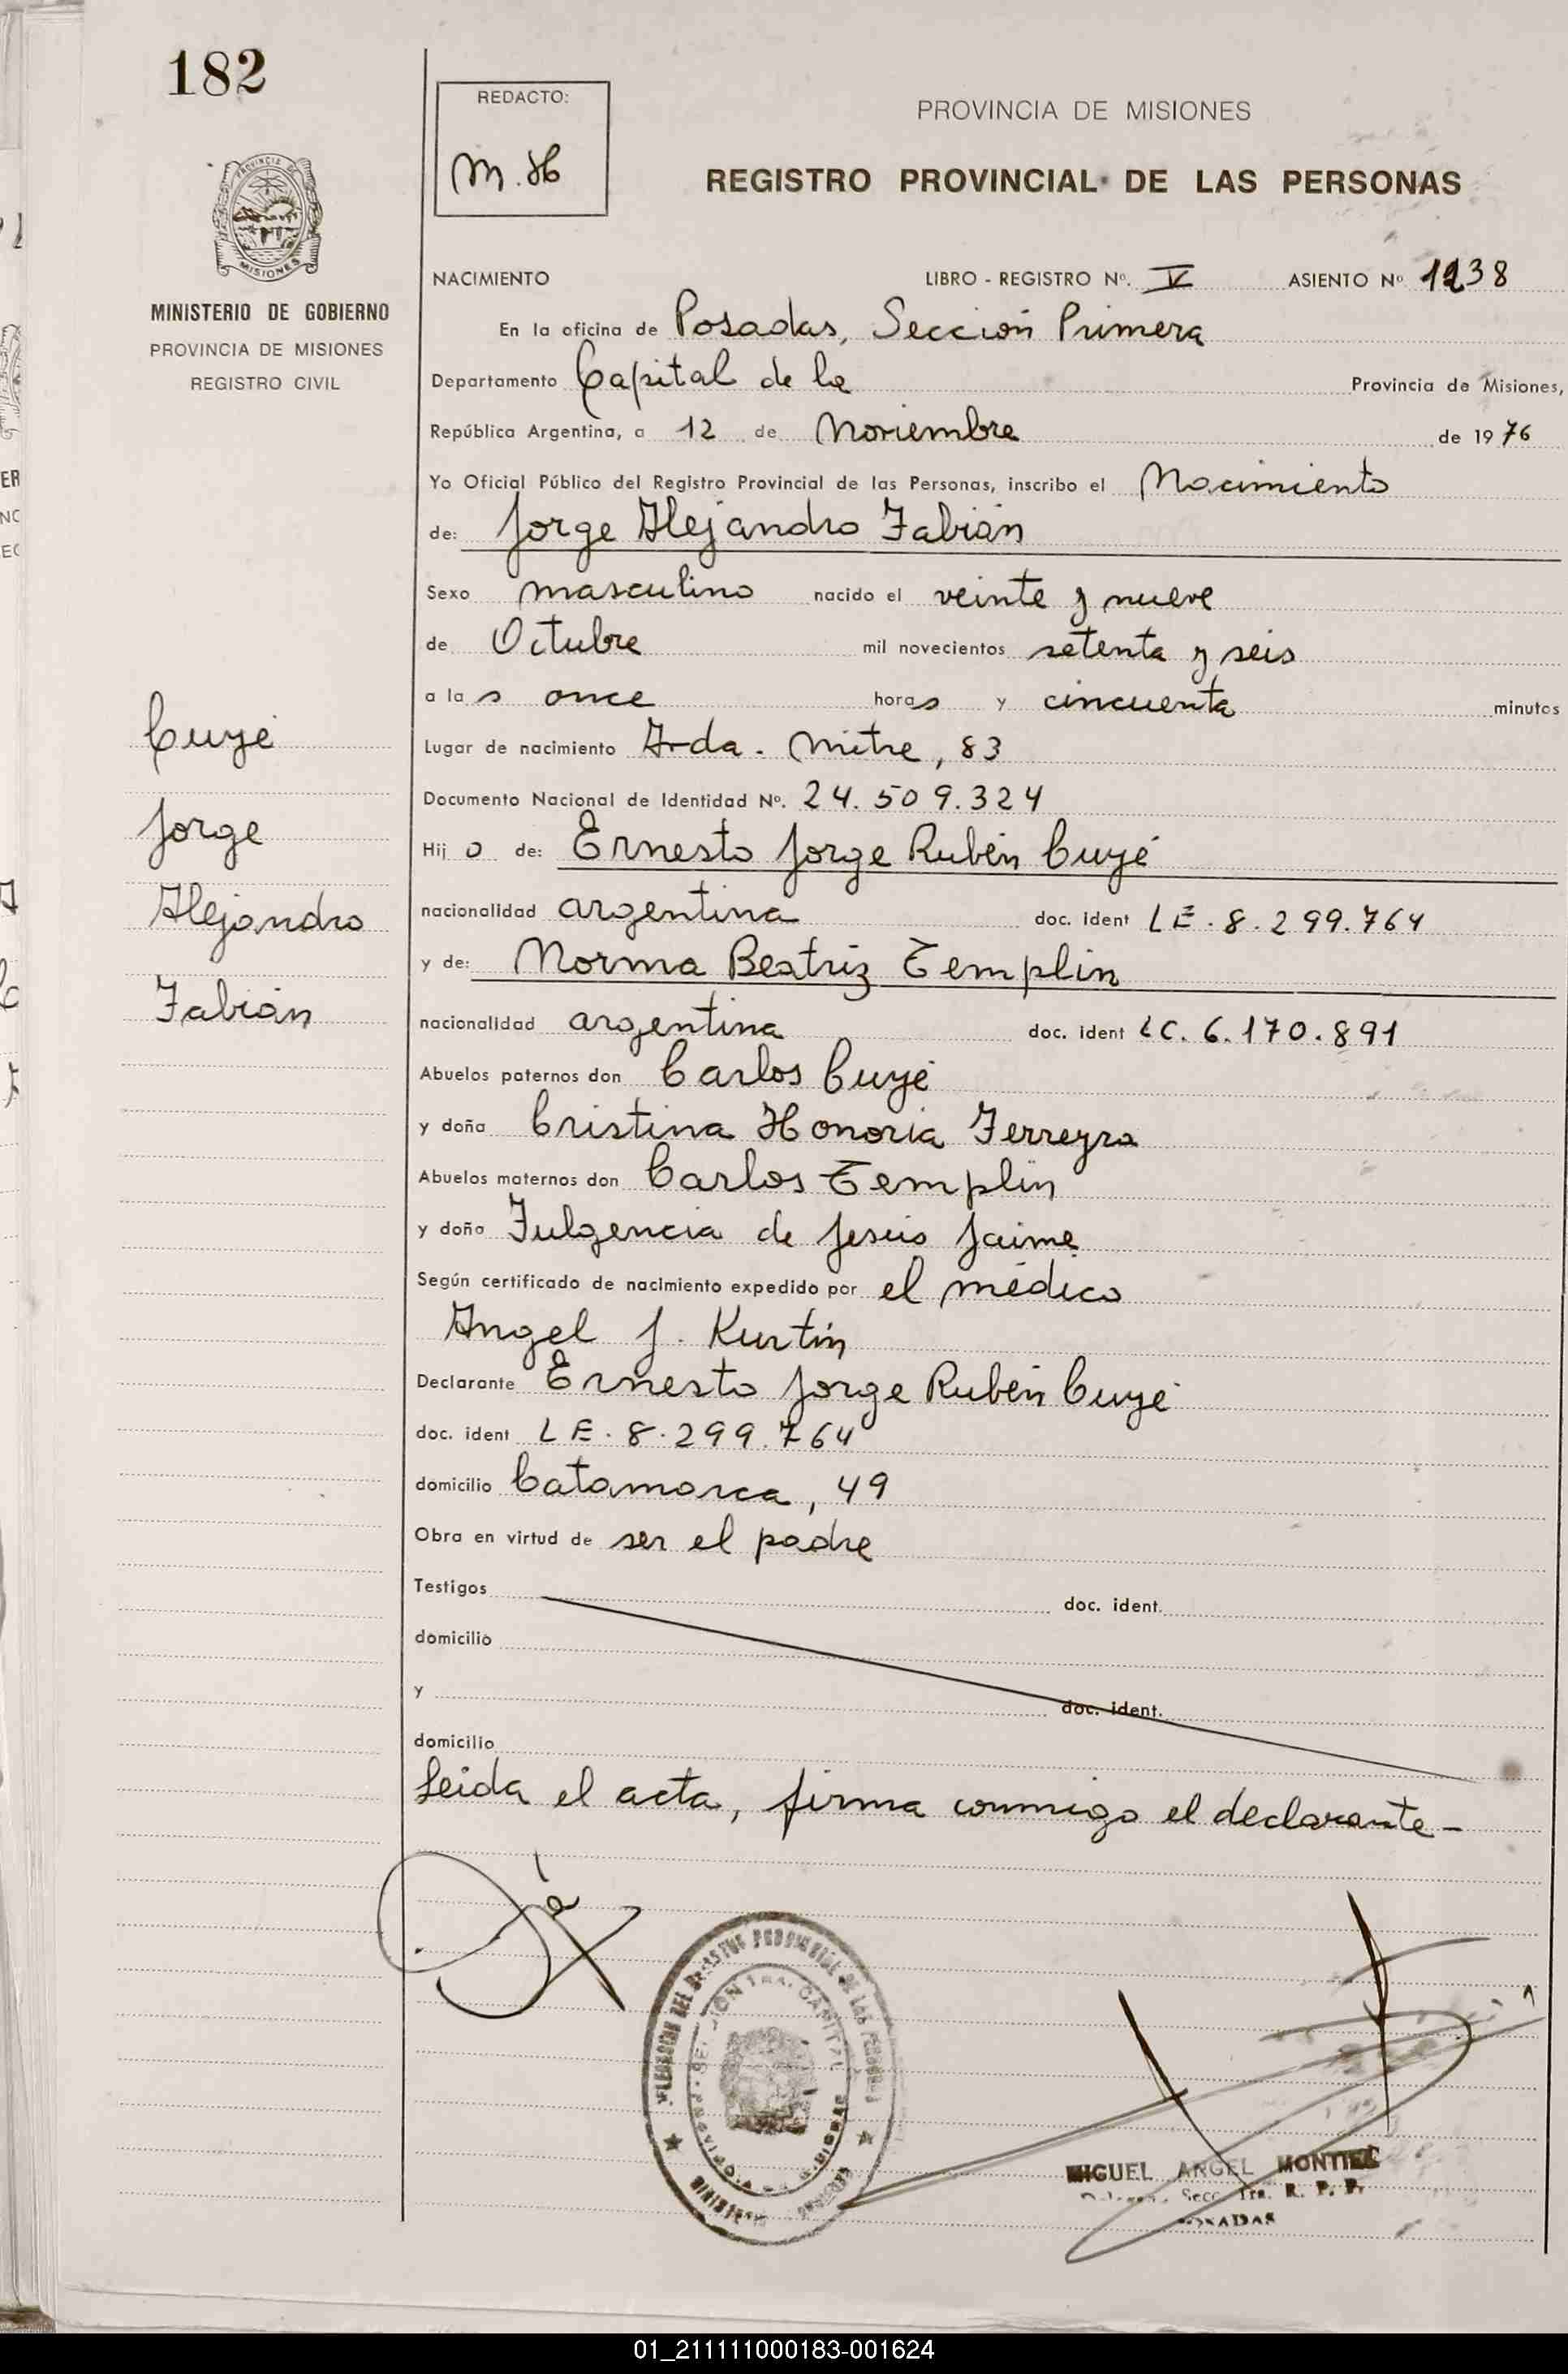 182
REDACTO:
M. H
PROVINCIA DE MISIONES
REGISTRO PROVINCIAL DE LAS PERSONAS
PROVINCIA DE
MISIONES
MINISTERIO DE GOBIERNO
PROVINCIA DE MISIONES
REGISTRO CIVIL
NACIMIENTO LIBRO - REGISTRO Nº. V ASIENTO Nº 1238
En la oficina de Posadas, Sección Primera
Departamento Capital de la Provincia de Misiones,
República Argentina, a 12 de Noviembre de 1976
Yo Oficial Público del Registro Provincial de las Personas, inscribo el Nacimiento
de: Jorge Alejandro Fabián
Sexo masculino nacido el veinte y nueve
de Octubre mil novecientos setenta y seis
a las once horas y cincuenta minutos
Lugar de nacimiento Avda. Mitre, 83
Documento Nacional de Identidad Nº. 24.509.324
Hijo de: Ernesto Jorge Rubén Cuyé
nacionalidad argentina doc. ident LE. 8.299.764
y de: Norma Beatriz Templin
nacionalidad argentina doc. ident LC. 6.170.891
Abuelos paternos don Carlos Cuyé
y doña Cristina Honoria Ferreyra
Abuelos maternos don Carlos Templin
y doña Fulgencia de Jesús Jaime
Según certificado de nacimiento expedido por el médico
Angel J. Kurtin
Declarante Ernesto Jorge Rubén Cuyé
doc. ident LE. 8.299.764
domicilio Catamarca, 49
Obra en virtud de ser el padre
Testigos doc. ident.
domicilio
y doc. ident.
domicilio
Leida el acta, firma conmigo el declarante-
Cuyé
Jorge
Alejandro
Fabián
MIGUEL ANGEL MONTIEL
Secc. 1ra. R. P. P.
POSADAS
01_211111000183-001624